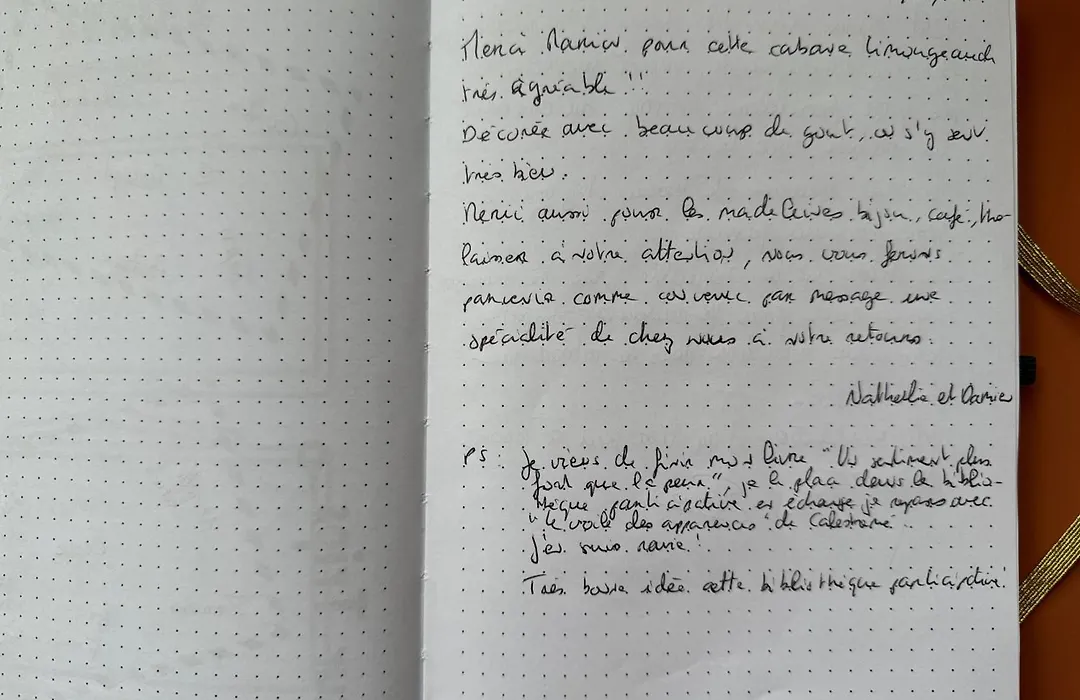 Merci Marion pour cette cabane limougeaude
très agréable !!
Décorée avec beaucoup de gout, on s'y sent
très bien.
Merci aussi pour les madeleines bijou, café, thé
laisser à notre attention, nous vous ferons
parvenir comme convenu par message une
spécialité de chez nous à votre retour.
Nathalie et Damien
PS : Je viens de finir mon livre "Un sentiment plus
fort que la peur", je le place dans la biblio-
thèque participative en échange je repars avec
"le voile des apparences" de
J'en suis ravie !
Très bonne idée cette bibliothèque participative.